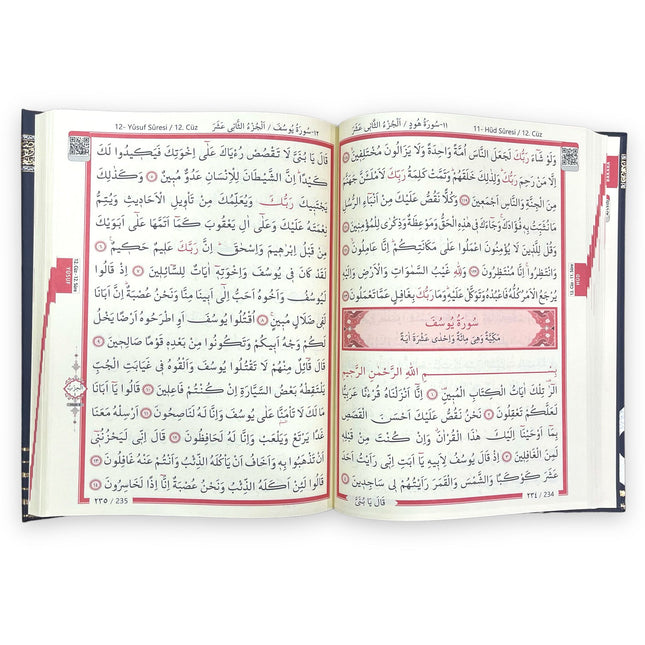 ١١-سُورَةُ هُودٍ / اَلْجُزْءُ الثَّانِى عَشَرَ 11- Hûd Sûresi / 12. Cüz
وَلَوْ شَٓاءَ رَبُّكَ لَجَعَلَ النَّاسَ اُمَّةً وَاحِدَةً وَلَا يَزَالُونَ مُخْتَلِفٖينَ ١١٨
اِلَّا مَنْ رَحِمَ رَبُّكَ وَلِذٰلِكَ خَلَقَهُمْ وَتَمَّتْ كَلِمَةُ رَبِّكَ لَاَمْلَـَٔنَّ جَهَنَّمَ
مِنَ الْجِنَّةِ وَالنَّاسِ اَجْمَعٖينَ ١١٩ وَكُلًّا نَقُصُّ عَلَيْكَ مِنْ اَنْبَٓاءِ الرُّسُلِ
مَا نُثَبِّتُ بِهٖ فُؤٰادَكَ وَجَٓاءَكَ فٖى هٰذِهِ الْحَقُّ وَمَوْعِظَةٌ وَذِكْرٰى لِلْمُؤْمِنٖينَ ١٢٠
وَقُلْ لِلَّذٖينَ لَا يُؤْمِنُونَ اعْمَلُوا عَلٰى مَكَانَتِكُمْ اِنَّا عَامِلُونَ ١٢١
وَانْتَظِرُوا اِنَّا مُنْتَظِرُونَ ١٢٢ وَلِلّٰهِ غَيْبُ السَّمٰوَاتِ وَالْاَرْضِ وَاِلَيْهِ
يُرْجَعُ الْاَمْرُ كُلُّهُ فَاعْبُدْهُ وَتَوَكَّلْ عَلَيْهِ وَمَا رَبُّكَ بِغَافِلٍ عَمَّا تَعْمَلُونَ ١٢٣
سُورَةُ يُوسُفَ
مَكِّيَّةٌ وَهِىَ مِائَةٌ وَاِحْدٰى عَشَرَةَ اٰيَةً
بِسْمِ اللّٰهِ الرَّحْمٰنِ الرَّحٖيمِ
الٓرٰ تِلْكَ اٰيَاتُ الْكِتَابِ الْمُبٖينِ ١ اِنَّٓا اَنْزَلْنَاهُ قُرْءٰنًا عَرَبِيًّا
لَعَلَّكُمْ تَعْقِلُونَ ٢ نَحْنُ نَقُصُّ عَلَيْكَ اَحْسَنَ الْقَصَصِ
بِمَٓا اَوْحَيْنَٓا اِلَيْكَ هٰذَا الْقُرْاٰنَ وَاِنْ كُنْتَ مِنْ قَبْلِهٖ
لَمِنَ الْغَافِلٖينَ ٣ اِذْ قَالَ يُوسُفُ لِاَبٖيهِ يَٓا اَبَتِ اِنّٖى رَاَيْتُ اَحَدَ
عَشَرَ كَوْكَبًا وَالشَّمْسَ وَالْقَمَرَ رَاَيْتُهُمْ لٖى سَاجِدٖينَ ٤
قَالَ يَا بُنَىَّ
٢٣٤ / 234
١٢-سُورَةُ يُوسُفَ / اَلْجُزْءُ الثَّانِى عَشَرَ 12- Yûsuf Sûresi / 12. Cüz
قَالَ يَا بُنَىَّ لَا تَقْصُصْ رُءْيَاكَ عَلٰٓى اِخْوَتِكَ فَيَكٖيدُوا لَكَ
كَيْدًا اِنَّ الشَّيْطَانَ لِلْاِنْسَانِ عَدُوٌّ مُبٖينٌ ٥ وَكَذٰلِكَ
يَجْتَبٖيكَ رَبُّكَ وَيُعَلِّمُكَ مِنْ تَاْوٖيلِ الْاَحَادٖيثِ وَيُتِمُّ
نِعْمَتَهُ عَلَيْكَ وَعَلٰٓى اٰلِ يَعْقُوبَ كَمَٓا اَتَمَّهَا عَلٰٓى اَبَوَيْكَ
مِنْ قَبْلُ اِبْرٰهٖيمَ وَاِسْحٰقَ اِنَّ رَبَّكَ عَلٖيمٌ حَكٖيمٌ ٦
لَقَدْ كَانَ فٖى يُوسُفَ وَاِخْوَتِهٖٓ اٰيَاتٌ لِلسَّٓائِلٖينَ ٧ اِذْ قَالُوا
لَيُوسُفُ وَاَخُوهُ اَحَبُّ اِلٰٓى اَبٖينَا مِنَّا وَنَحْنُ عُصْبَةٌ اِنَّ اَبَانَا
لَفٖى ضَلَالٍ مُبٖينٍ ٨ اُقْتُلُوا يُوسُفَ اَوِ اطْرَحُوهُ اَرْضًا يَخْلُ
لَكُمْ وَجْهُ اَبٖيكُمْ وَتَكُونُوا مِنْ بَعْدِهٖ قَوْمًا صَالِحٖينَ ٩
قَالَ قَٓائِلٌ مِنْهُمْ لَا تَقْتُلُوا يُوسُفَ وَاَلْقُوهُ فٖى غَيَابَتِ الْجُبِّ
يَلْتَقِطْهُ بَعْضُ السَّيَّارَةِ اِنْ كُنْتُمْ فَاعِلٖينَ ١٠ قَالُوا يَٓا اَبَانَا
مَا لَكَ لَا تَاْمَنَّا عَلٰى يُوسُفَ وَاِنَّا لَهُ لَنَاصِحُونَ ١١ اَرْسِلْهُ مَعَنَا
غَدًا يَرْتَعْ وَيَلْعَبْ وَاِنَّا لَهُ لَحَافِظُونَ ١٢ قَالَ اِنّٖى لَيَحْزُنُنٖٓى
اَنْ تَذْهَبُوا بِهٖ وَاَخَافُ اَنْ يَاْكُلَهُ الذِّئْبُ وَاَنْتُمْ عَنْهُ غَافِلُونَ ١٣
قَالُوا لَئِنْ اَكَلَهُ الذِّئْبُ وَنَحْنُ عُصْبَةٌ اِنَّٓا اِذًا لَخَاسِرُونَ ١٤
٢٣٥ / 235
YUSUF
12. Cüz - 12. Sûre
HÛD
12. Cüz - 11. Sûre
BAKARA